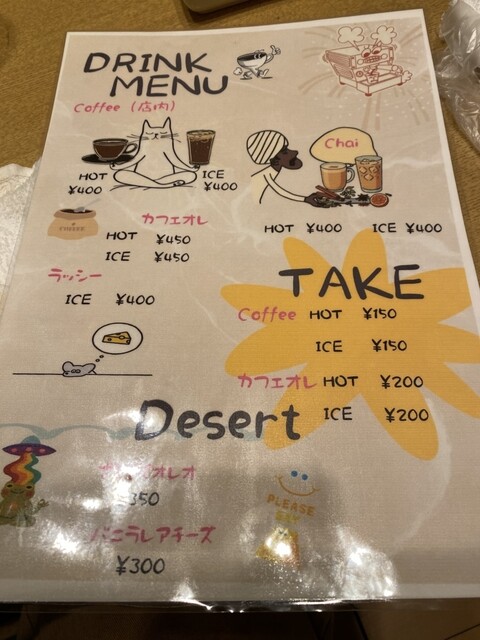 DRINK
MENU
Coffee (店内)
HOT
¥400
ICE
¥400
Chai
HOT ¥400 ICE ¥400
COFFEE
カフェオレ
HOT ¥450
ICE ¥450
ラッシー
ICE ¥400
TAKE
Coffee HOT ¥150
ICE ¥150
カフェオレ HOT ¥200
ICE ¥200
Desert
オレオ
350
バニラレアチーズ
¥300
PLEASE